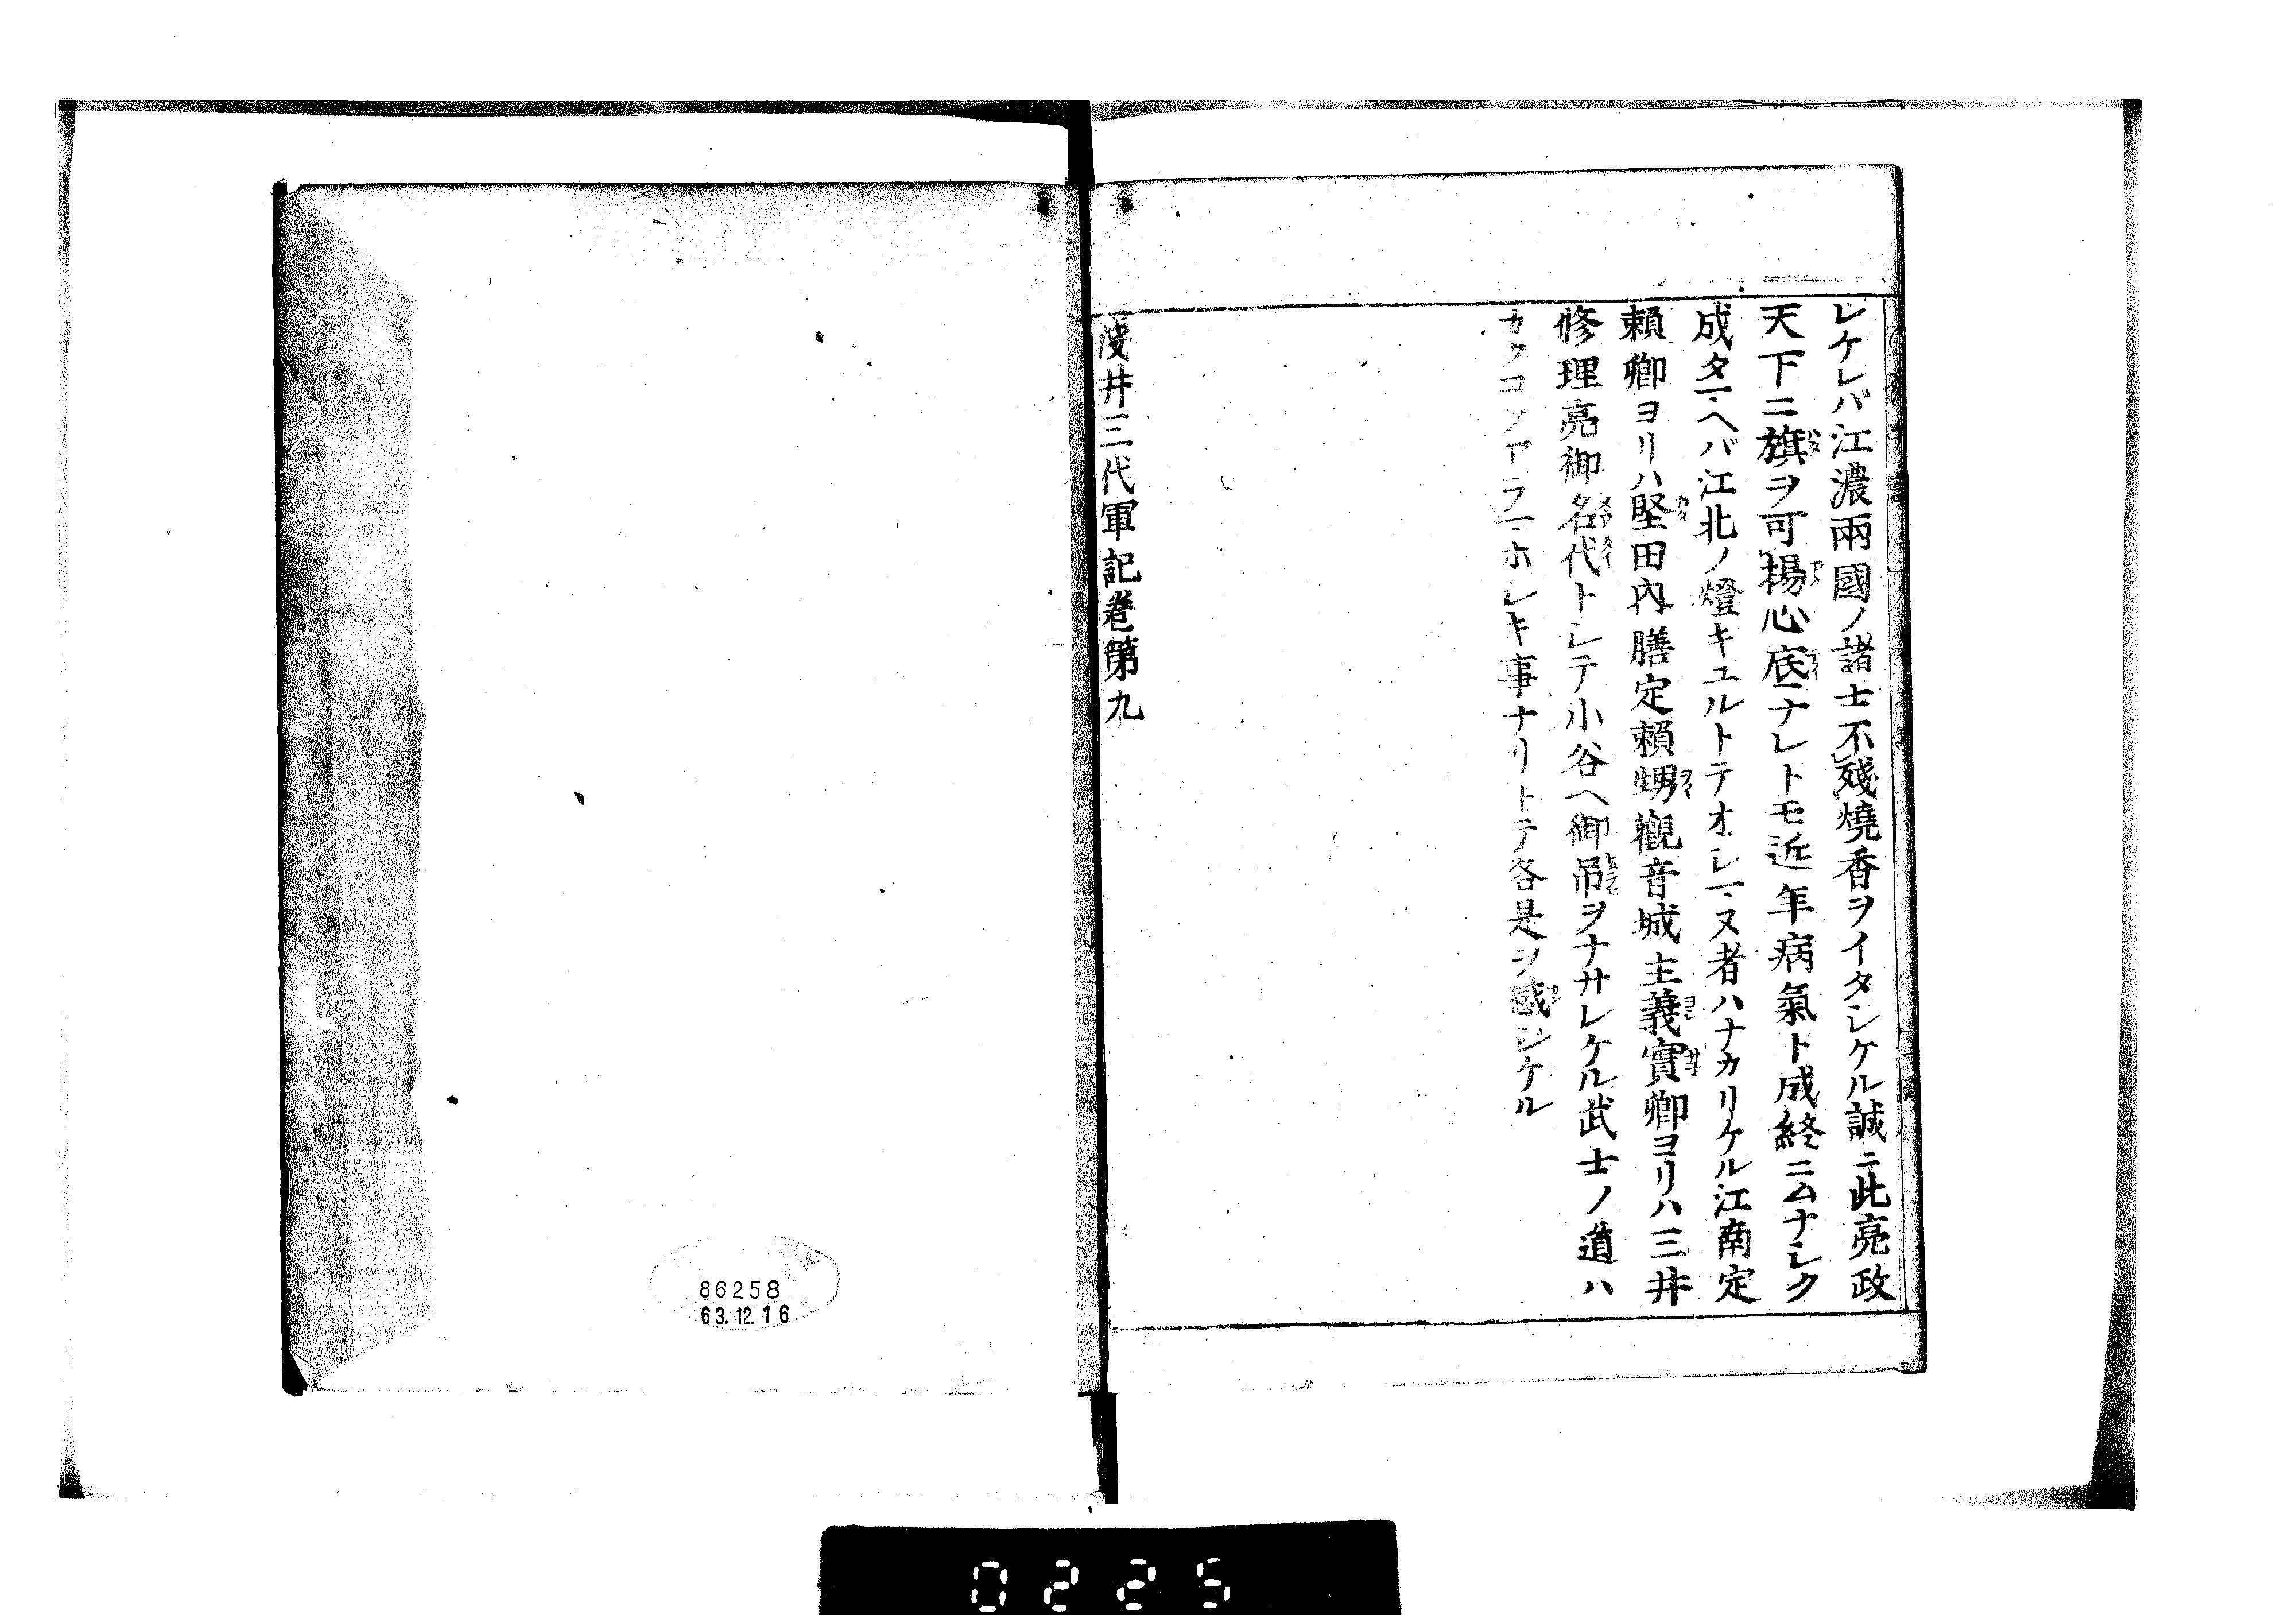 レケレバ江濃兩國ノ諸士不殘燒香ヲイタシケル誠ニ此亮政
天下ニ旗ヲ可揚心底ナレトモ近年病氣ト成終ニムナシク
成タマヘバ江北ノ燈キユルトテオシマヌ者ハナカリケル江南定
頼卿ヨリハ堅田内膳定頼甥觀音城主義實卿ヨリハ三井
修理亮御名代トシテ小谷ヘ御吊ヲナサレケル武士ノ道ハ
カクコソアラマホシキ事ナリトテ各是ヲ感シケル
浅井三代軍記巻第九
86258
63.12.16
0225